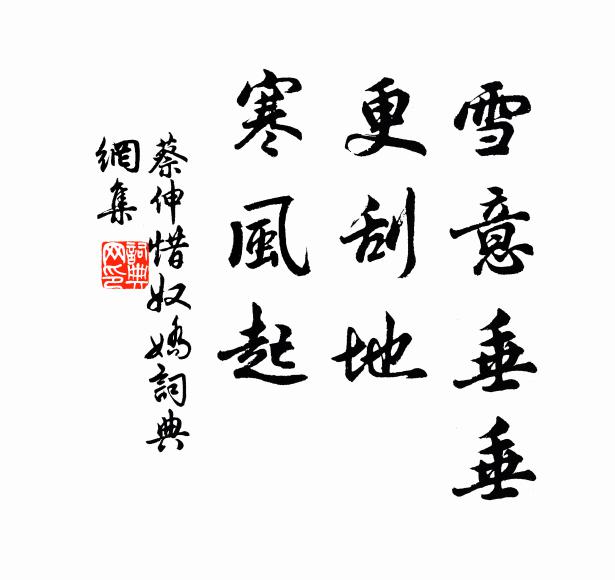 雪意垂垂
更刮地
寒風起
蔡伸惜奴嬌詞典
網集
詞典網印